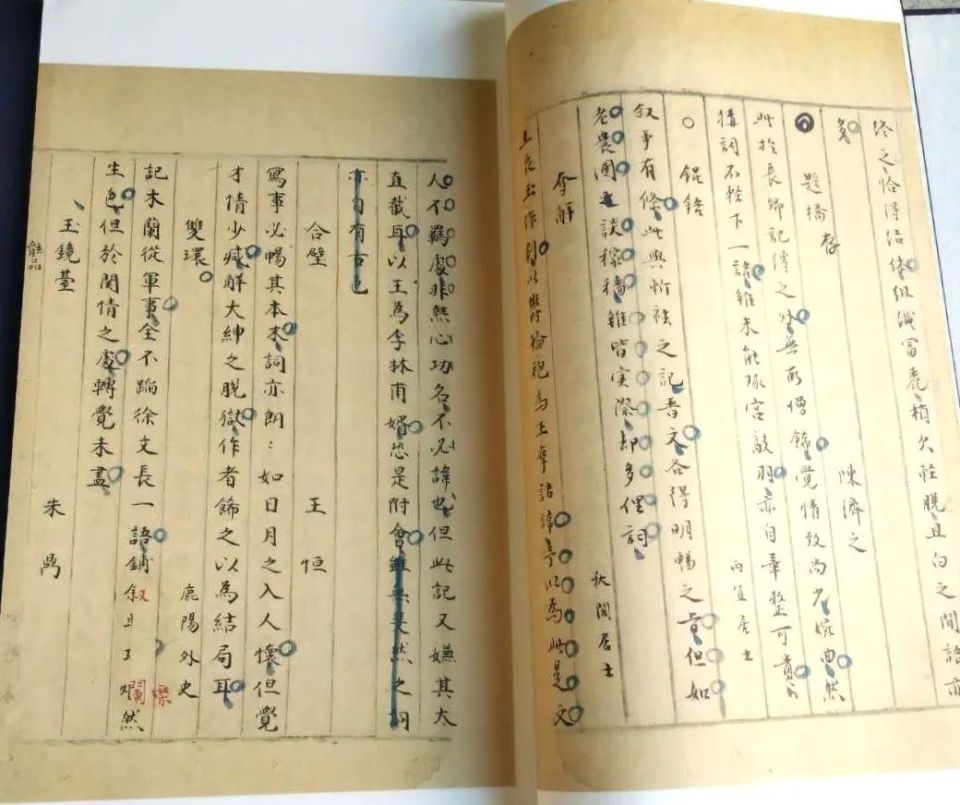 之恰得活組織富麗稍欠輕脫且白之間語亦
多　陳濟之
題橋　存
此於長卿記傳之外無所增飾覺情致尚少婉曲然
後詞不輕下一語雖未能琢宮敲羽亦自章整可
錕鋙　兩宜居士
叙事有條此與斬祛之記晉文合得明暢之旨但如
老農圃之談稼穡雖皆实際却多俚詞
奪解　秋閣居士
王辰玉作劇以鬱輪袍為王摩詰諱予以為此是文
人不羈處非熱心功名不必諱也但此記又嫌其太
直截耳以王為李林甫婿恐是附會雖無然之詞
亦自有古色
合璧　王恒
寫事必暢其本末詞亦朗：如日月之入人懷但覺
才情少减解大紳之脫獄作者飾之以為結局耳
雙環　鹿陽外史
記木蘭從軍事全不蹈徐文長一語鋪叙且了爛然
生色但於閨情之處轉覺未盡
玉鏡臺　朱鼎
能品